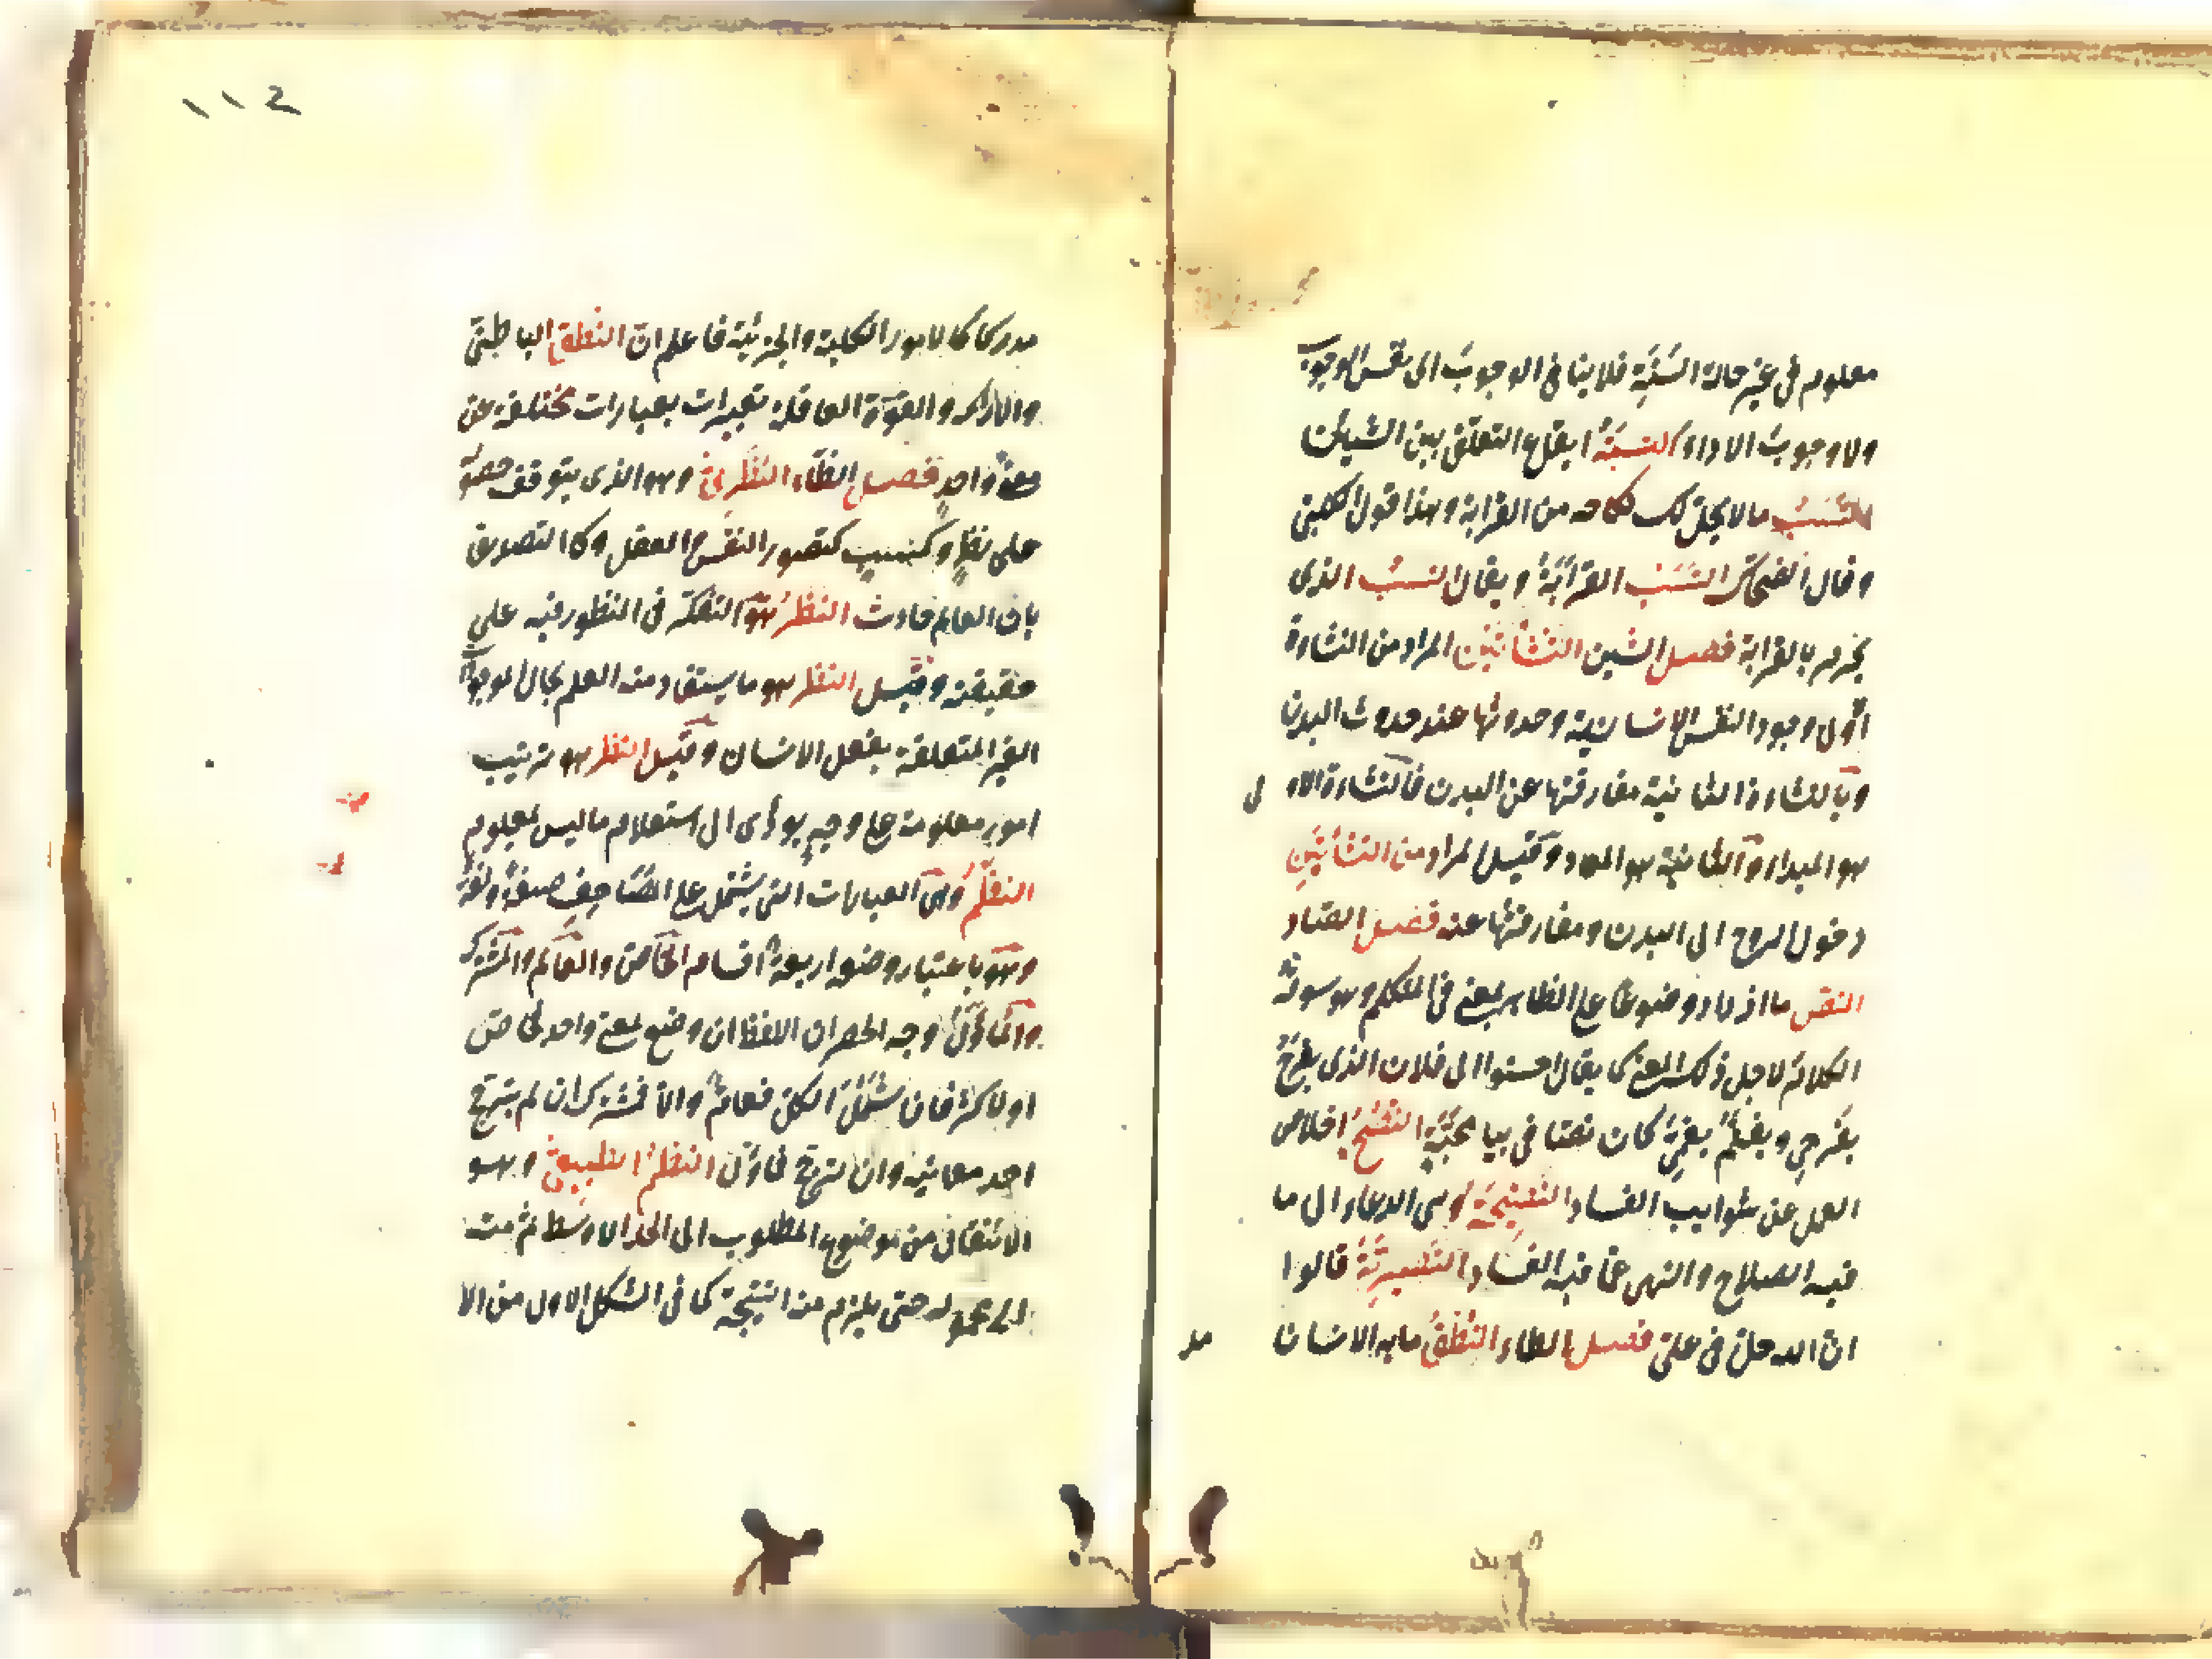 معلوم في غير حالة السنة فلا ينافي الوجوب الى نفس الوجوب
ولا وجوب الاداء النسبة ايقاع التعلق بين الشيئين
النسب ما لا يحل لك نكاحه من القرابة وهذا قول الكلبي
وقال الضحاك النسب القرابة ويقال النسب الذي
يحرم بالقرابة فصل الشين النشأتين المراد من النشاءة
اولى وجود النفس الانسانية وحدوثها عند حدوث البدن
وبالنشاءة الثانية مفارقتها عن البدن فالنشاءة الاولى
هو المبداء والثانية هو المعاد وقيل المراد من النشأتين
دخول الروح الى البدن ومفارقتها عنه فصل الصاد
النص ما ازداد وضوحا على الظاهر بمعنى في المتكلم وهو سوق
الكلام لاجل ذلك المعنى كما يقال احسنوا الى فلان الذي يفرح
بفرحي ويغتم بغمي كان نصا في بيان محبته النصح اخلاص
العمل عن شوايب الفساد النصيحة وهي الدعاء الى ما
فيه الصلاح والنهي عما فيه الفساد النصيرية قالوا
ان الله حل في علي فصل الطاء النطق ما به الانسان
مد
١١٢
مدركا كالامور الكلية والجزئية فاعلم ان النطق الباطني
والادراك والقوة العاقلة تعبيرات بعبارات مختلفة عن
معنى واحد فصل الظاء النظري وهو الذي يتوقف حصوله
على نظر وكسب كتصور النفس العقل وكالتصديق
بان العالم حادث النظر هو التفكر في المنظور فيه على
حقيقته وقيل النظر هو ما يستفاد منه العلم بحال الموجود
الغير المتعلقة بفعل الانسان وقيل النظر هو ترتيب
امور معلومة على وجه يودى الى استعلام ما ليس بمعلوم
النظم وهي العبارات التي يشتمل على المصاحف صيغة ولغة
وهو باعتبار وضعه اربعة اقسام الخاص والعام والمشترك
والماول وجه الحصر ان اللفظ ان وضع لمعنى واحد فخاص
او لاكثر فان شمل الكل فعام والا فمشترك ان لم يترجح
احد معانيه وان ترجح فماول النظم الطبيعي وهو
الانتقال من موضوع المطلوب الى الحد الاوسط ثم منه
الى محموله حتى يلزم منه النتيجة كما في الشكل الاول من الا